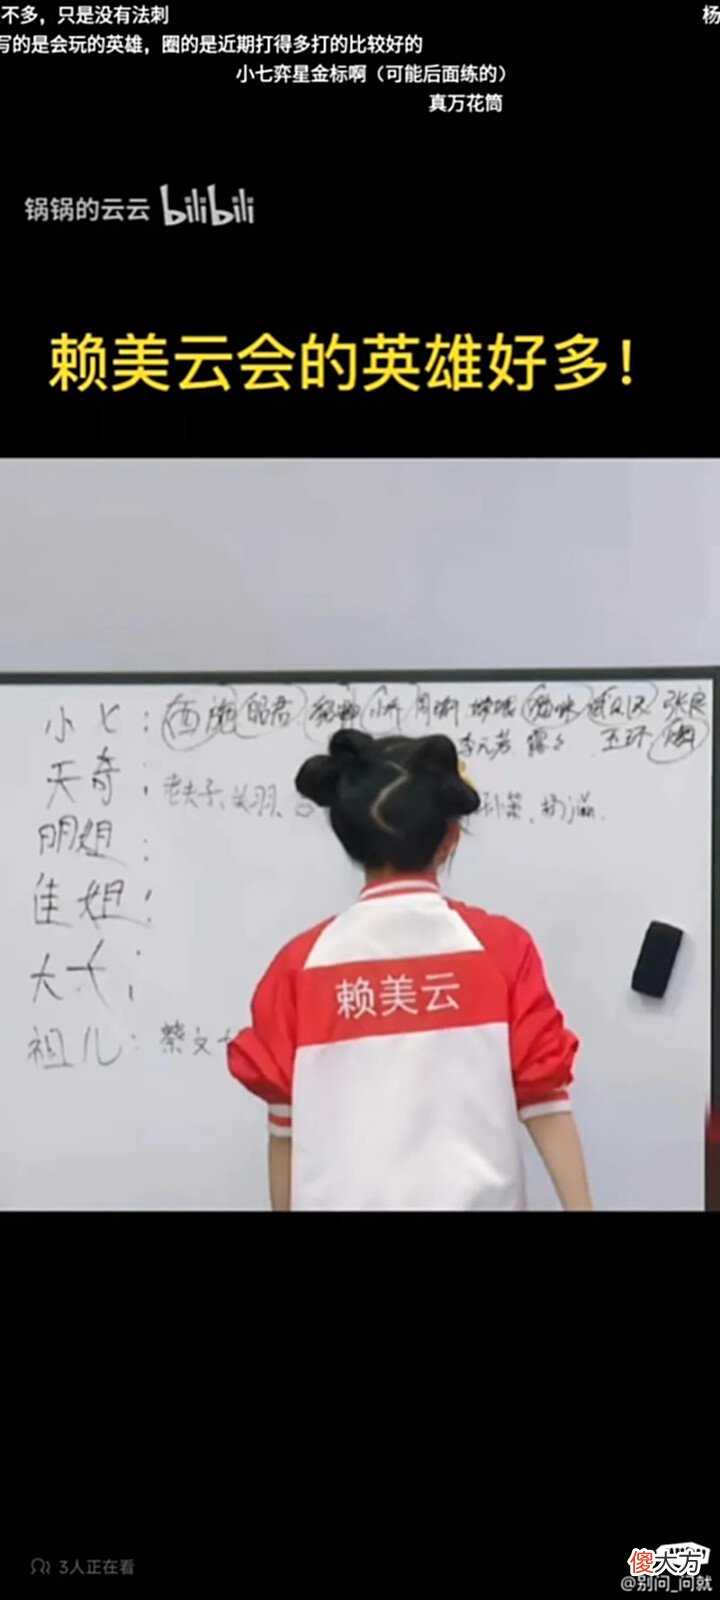 不多，只是没有法刺
杨
写的是会玩的英雄，圈的是近期打得多打的比较好的
小七弈星金标啊（可能后面练的）
真万花筒
锅锅的云云 bilibili
赖美云会的英雄好多！
小七：西施 昭君 貂蝉 小乔 周瑜 嫦娥 张良
李元芳 露 玉环
天奇：老夫子、关羽、 孙策、杨戬.
明姐：
佳姐：
大大：
祖儿：蔡文
赖美云
3人正在看
傻大方
@别问_问就